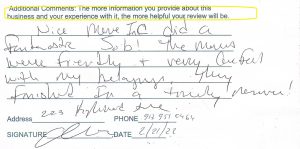 Additional Comments: The more information you provide about this
business and your experience with it, the more helpful your review will be.
Nice Move Inc did a
Fantastic Job! The movers
were friendly + very careful
with my belongings. They
finished in a timely manner!
223 Highland Ave
Address PHONE
SIGNATURE DATE 2/21/22